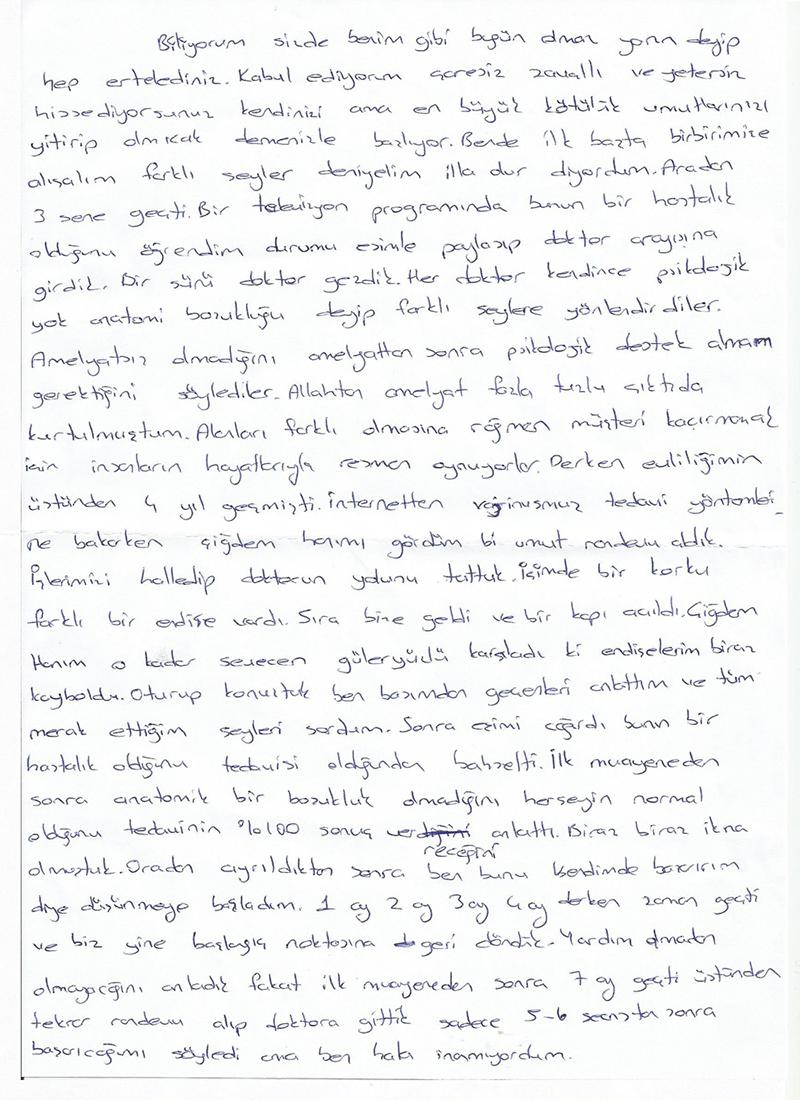 Biliyorum sizde benim gibi bugün olmaz yarın deyip
hep ertelediniz. Kabul ediyorum çaresiz zavallı ve yetersiz
hissediyorsunuz kendinizi ama en büyük kötülük umutlarınızı
yitirip olmıcak demenizle başlıyor. Bende ilk başta birbirimize
alışalım farklı şeyler deniyelim illa olur diyordum. Aradan
3 sene geçti. Bir televizyon programında bunun bir hastalık
olduğunu öğrendim durumu eşimle paylaşıp doktor arayışına
girdik. Bir sürü doktor gezdik. Her doktor kendince psikolojik
yok anatomi bozukluğu deyip farklı şeylere yönlendirdiler.
Ameliyatsız olmadığını ameliyattan sonra psikolojik destek almam
gerektiğini söylediler. Allahtan ameliyat fazla tuzlu çıktıda
kurtulmuştum. Alanları farklı olmasına rağmen müşteri kaçırmamak
için insanların hayatlarıyla resmen oynuyorlar. Derken evliliğimin
üstünden 4 yıl geçmişti. İnternetten vajinusmuz tedavi yöntemleri-
ne bakarken çiğdem hanımı gördüm bi umut randevu aldık.
İşlerimizi halledip doktorun yolunu tuttuk. İçimde bir korku
farklı bir endişe vardı. Sıra bize geldi ve bir kapı açıldı. Çiğdem
Hanım o kadar sevecen güleryüzlü karşıladı ki endişelerim biraz
kayboldu. Oturup konuştuk ben başımdan geçenleri anlattım ve tüm
merak ettiğim şeyleri sordum. Sonra eşimi çağırdı bunun bir
hastalık olduğunu tedavisi olduğundan bahsetti. İlk muayeneden
sonra anatomik bir bozukluk olmadığını herşeyin normal
olduğunu tedavinin %100 sonuç vereceğini anlattı. Biraz biraz ikna
olmuştuk. Oradan ayrıldıktan sonra ben bunu kendimde başarırım
diye düşünmeye başladım. 1 ay 2 ay 3 ay 4 ay derken zaman geçti
ve biz yine başlagıç noktasına geri döndük. Yardım almadan
olmayacağını anladık fakat ilk muayeneden sonra 7 ay geçti üstünden
tekrar randevu alıp doktora gittik sadece 5-6 seansta sonra
başarıcağımı söyledi ama ben hala inanmıyordum.